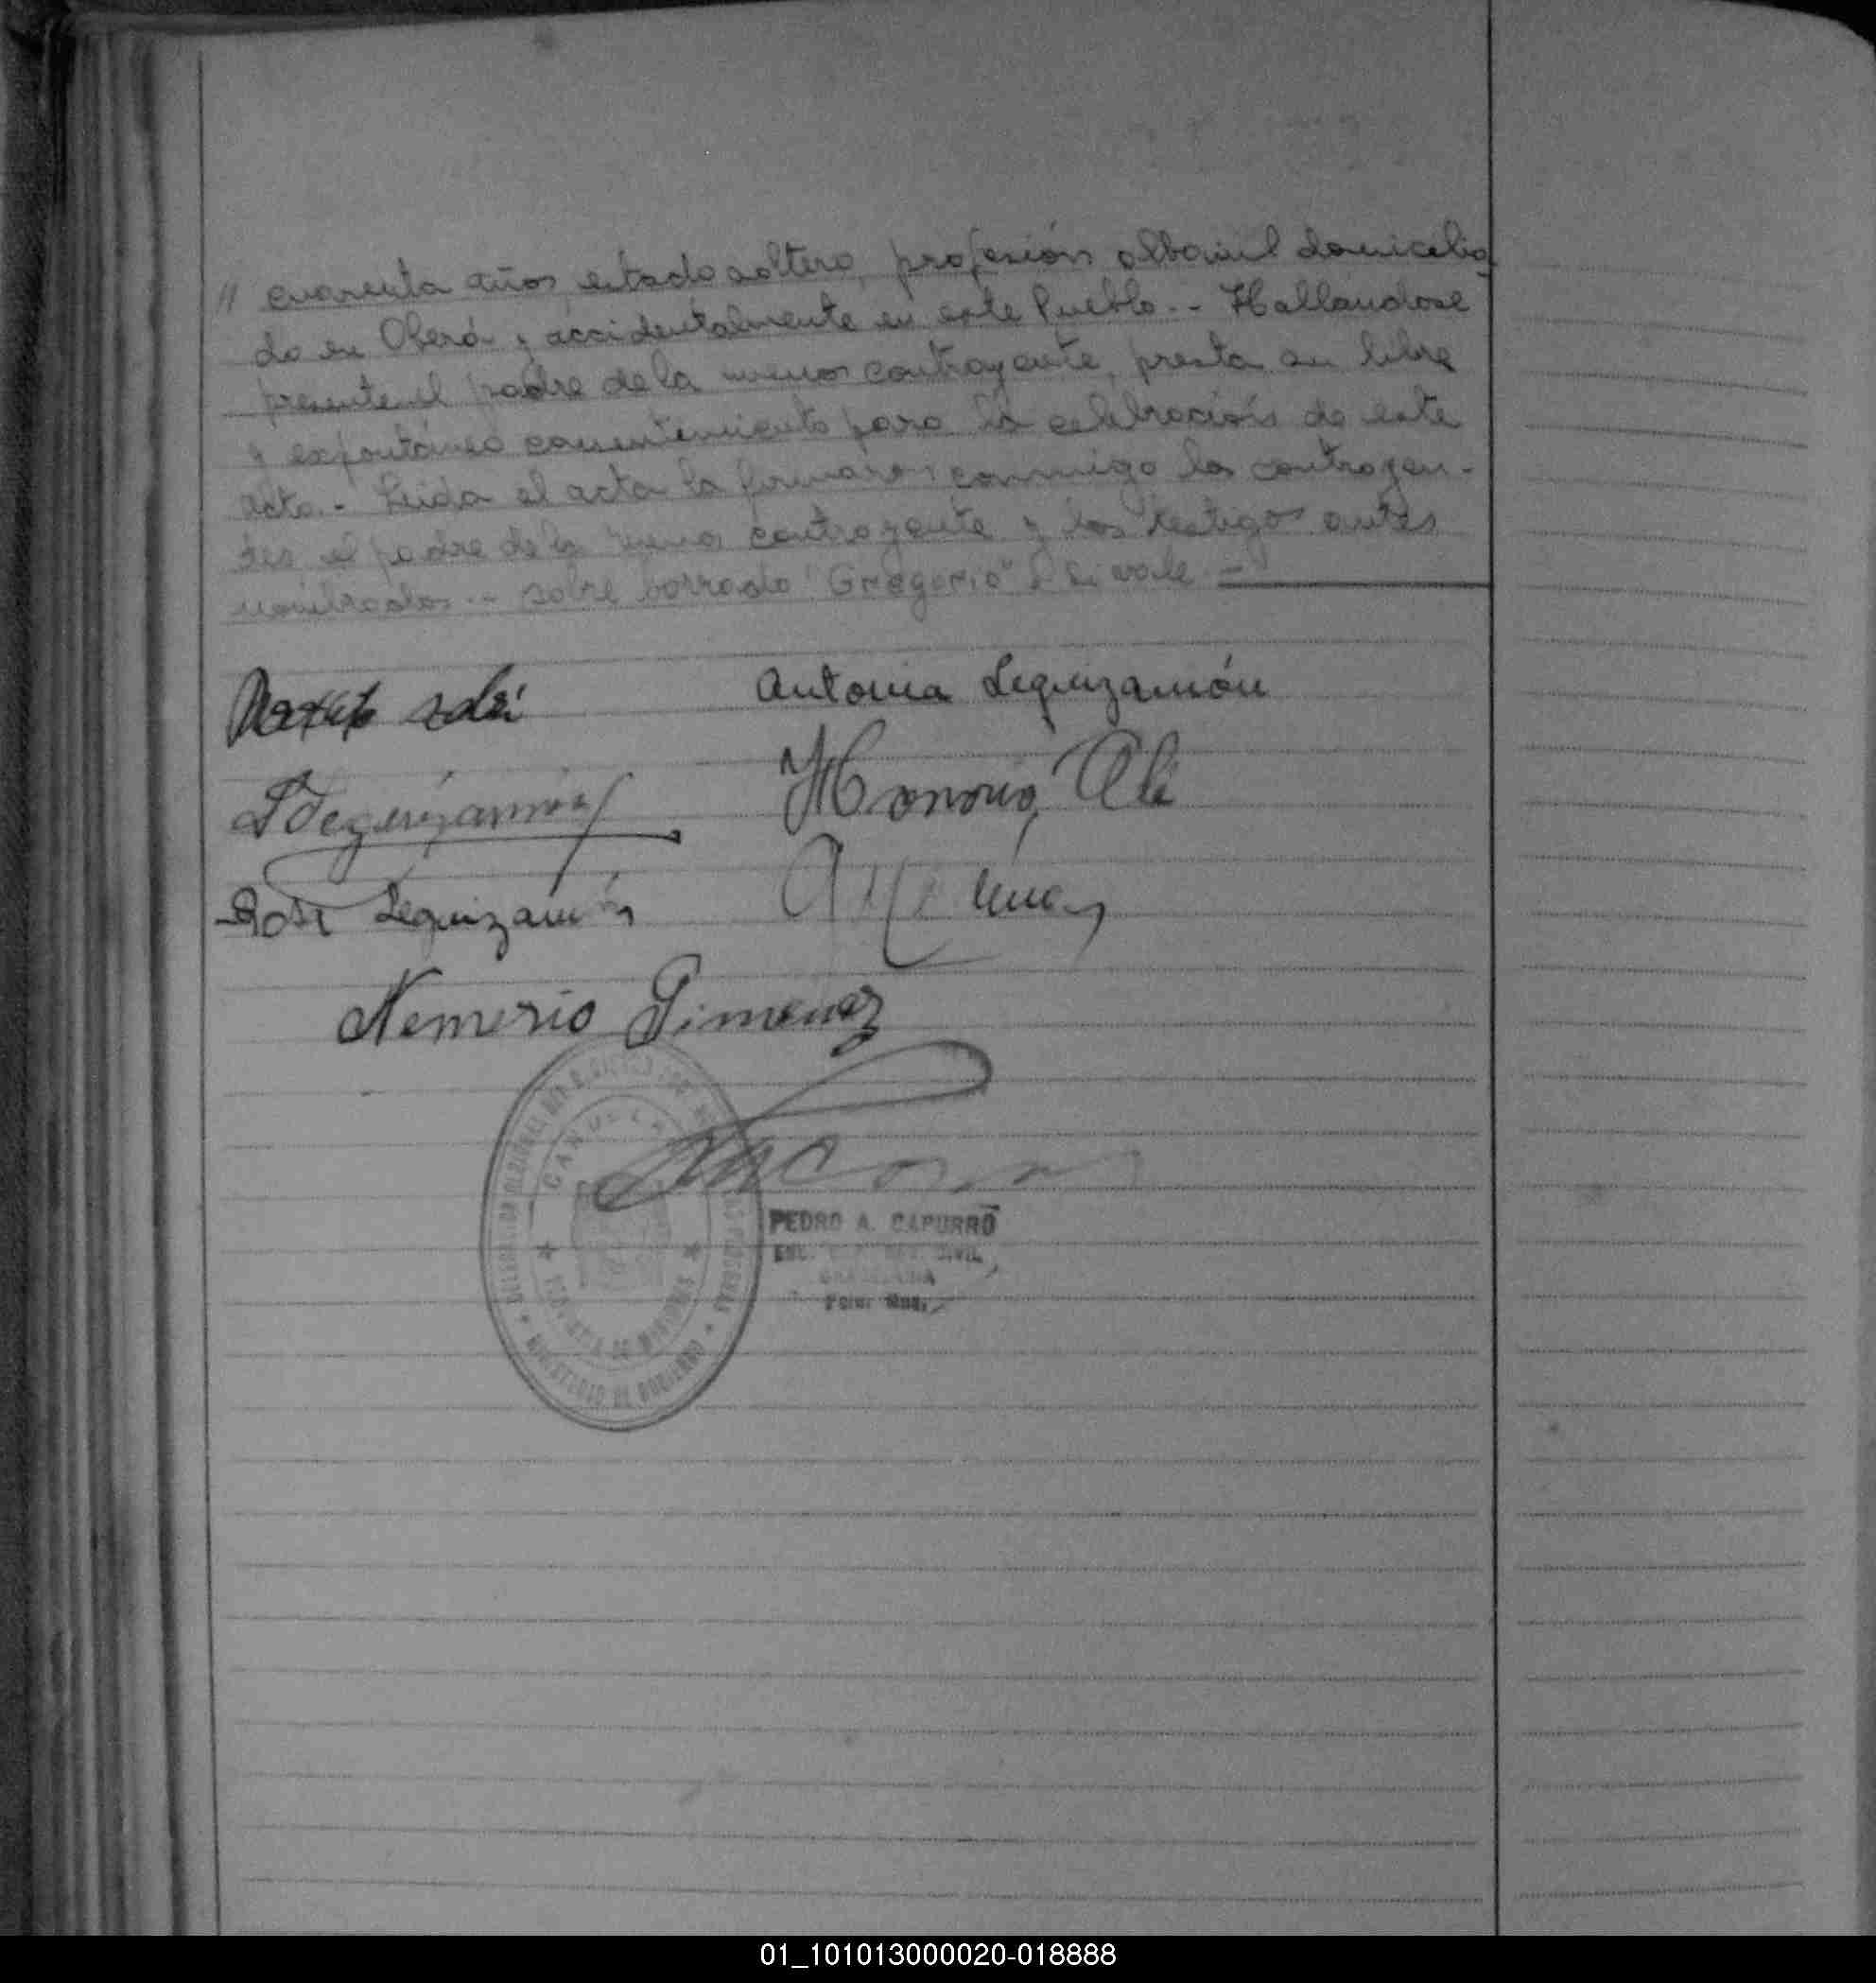 // cuarenta años, estado soltero, profesión albañil domicilia-
do en Oberá y accidentalmente en este Pueblo.- Hallandose
presente el padre de la menor contrayente, presta su libre
y expontáneo consentimiento para la celebración de este
acto.- Leida el acta la firmaron conmigo los contrayen-
tes el padre de la menor contrayente y los testigos antes
nombrados.- sobre borrado "Gregorio" Si vale.-
Antonia Leguizamón
Leguizamón
Honorio
Leguizamón
Nemerio Gimenez
CANDELARIA
PROVINCIA DE MISIONES
MINISTERIO DE GOBIERNO
PEDRO A. CAPURRO
CIVIL
01_101013000020-018888